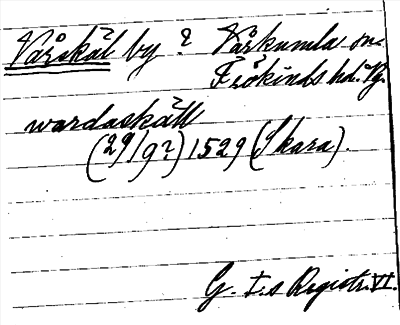 Vårskäl by ? Vårkumla sn.
Frökinds hd. Vg.
wardaskäll
(29/9?) 1529 (Skara).
G. I.s Registr. VI.